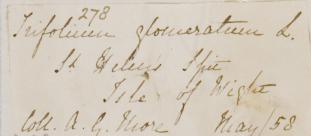 278
Trifolium glomeratum L.
St Helens Spit
Isle of Wight
Coll. A. G. More May 58